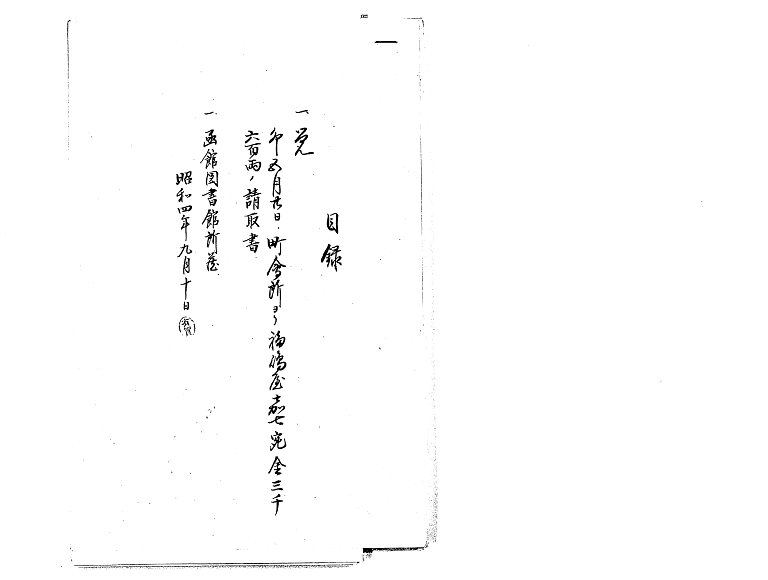 目録
一 覚
卯五月廿日、町會所ヨリ福嶋屋嘉七宛金三千
六百両ノ請取書
一 函館図書館所蔵
昭和四年九月十日